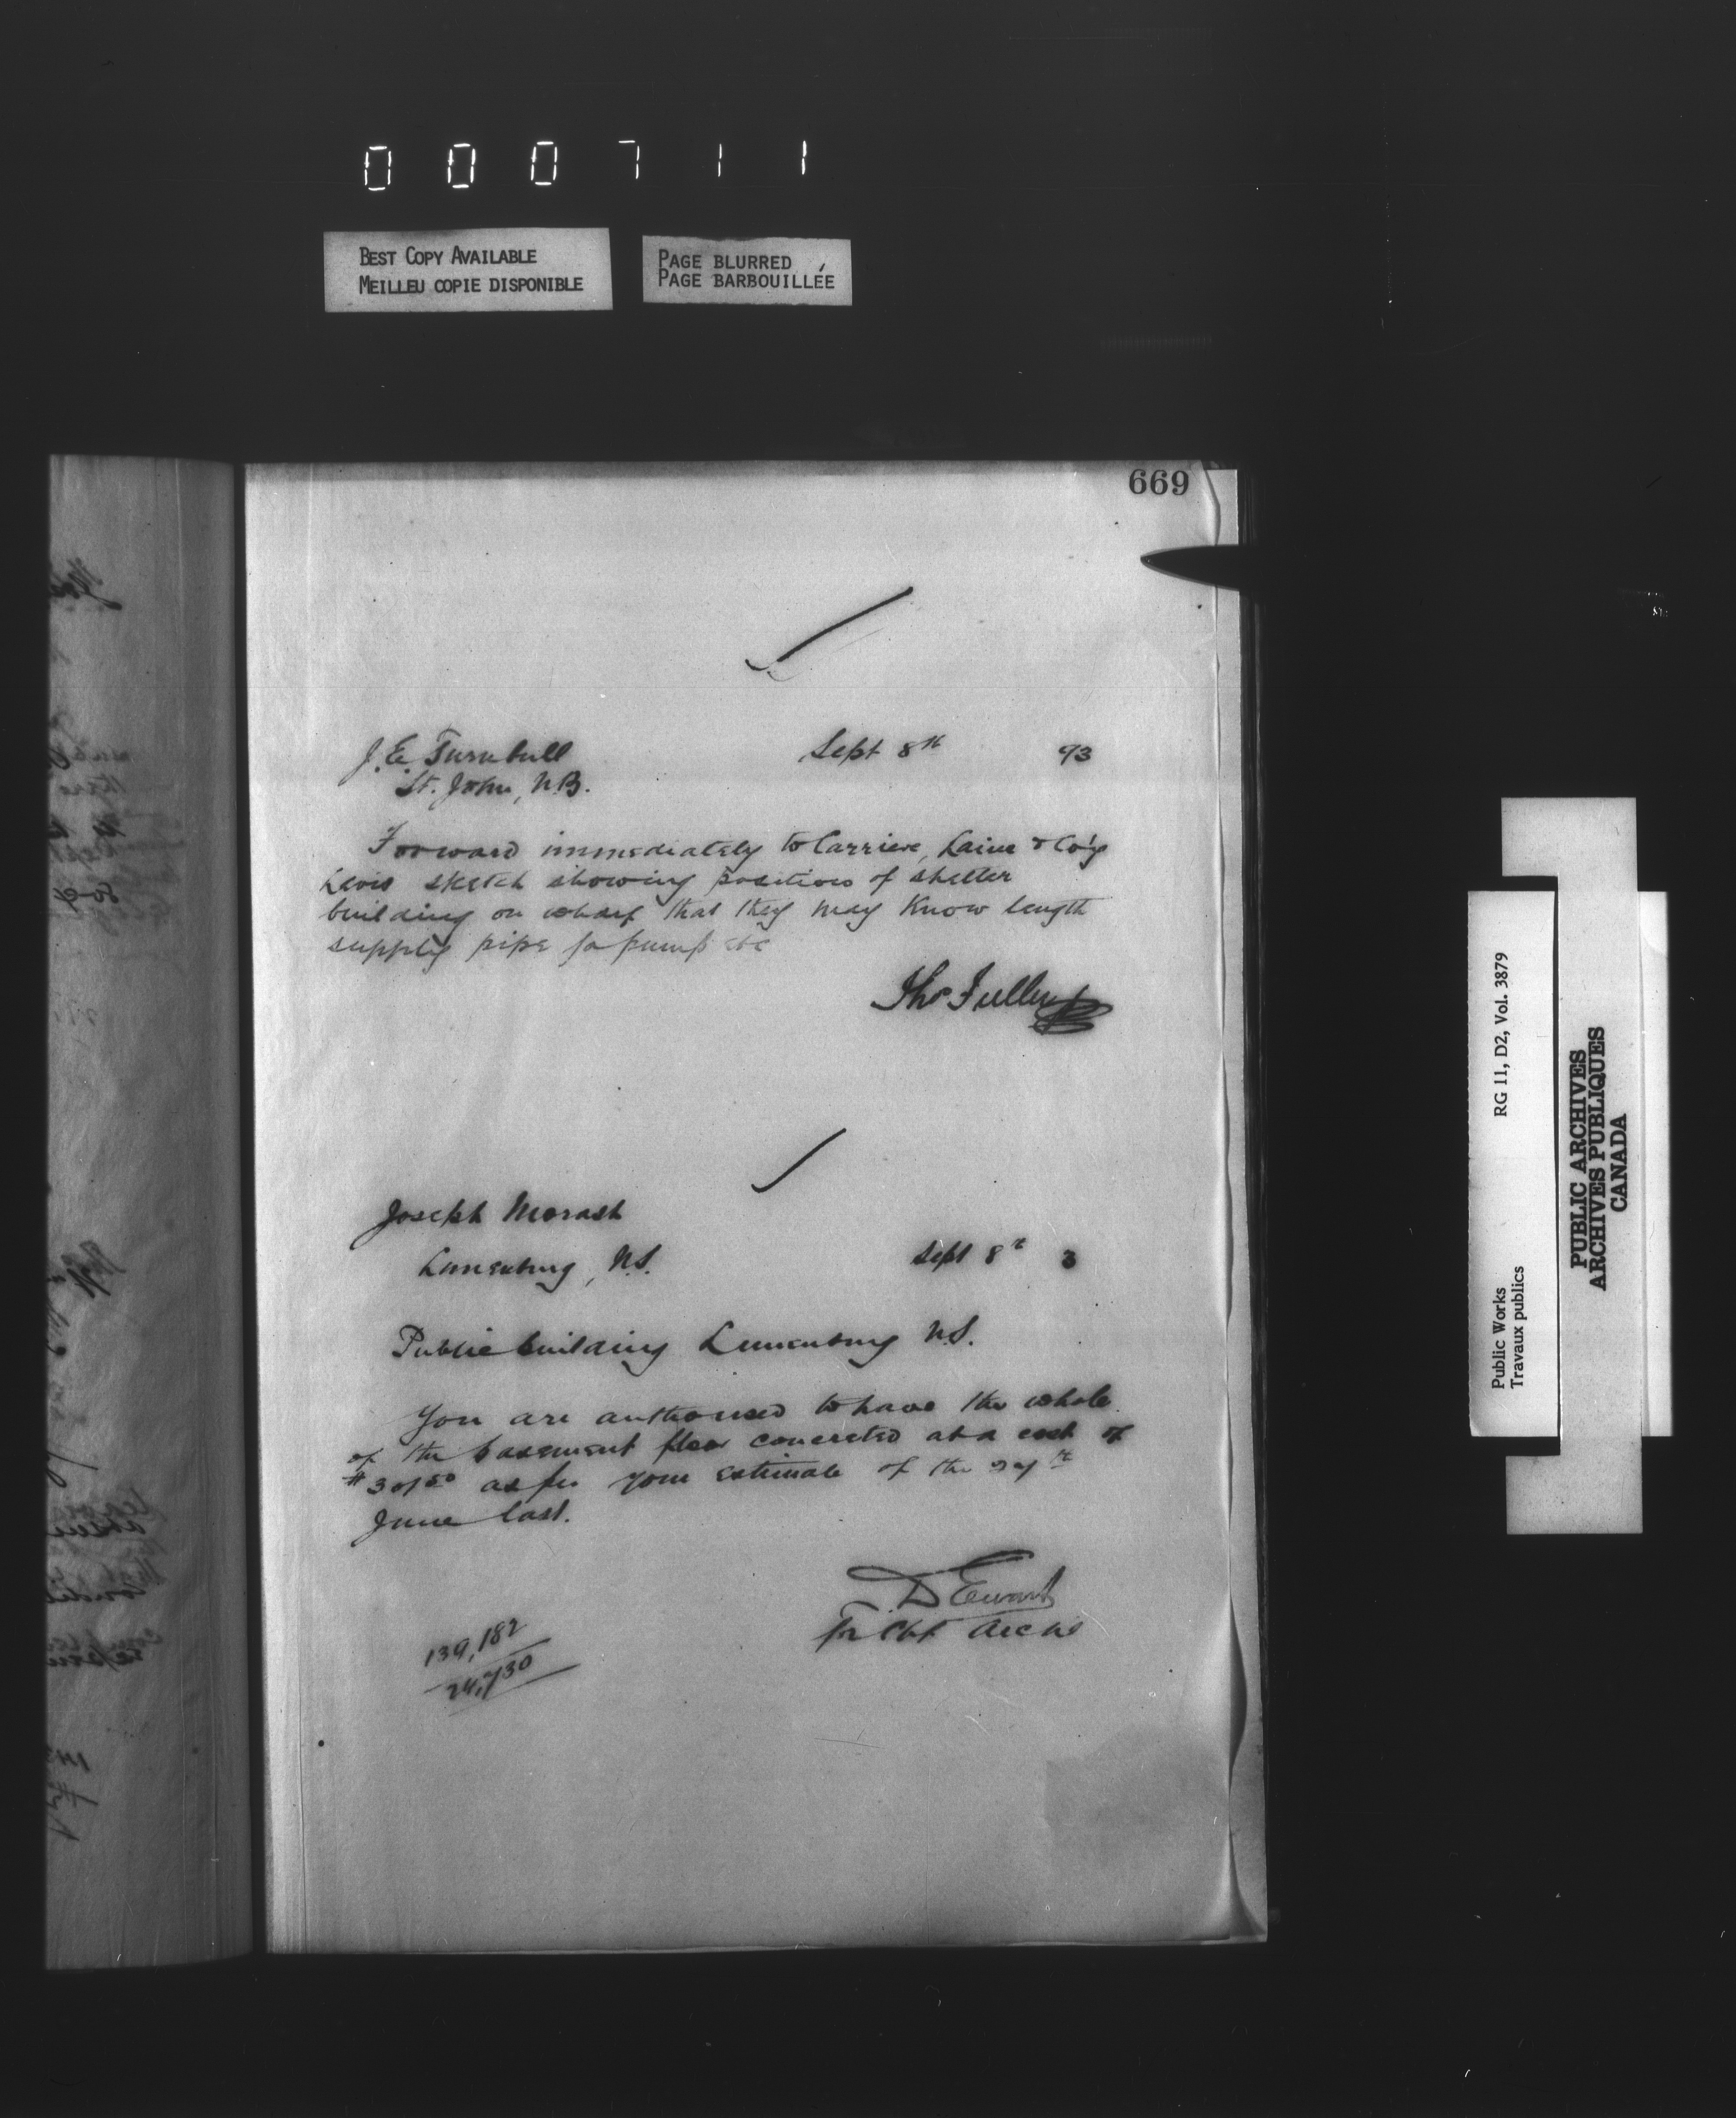 000711
BEST COPY AVAILABLE
MEILLEU COPIE DISPONIBLE
PAGE BLURRED
PAGE BARBOUILLÉE
669
J. E. Turnbull Sept 8th 93
St. John, N.B.
Forward immediately to Carriere, Laine & Co'y
Levis sketch showing position of shelter
building on wharf that they may know length
supply pipe for pump etc
Thos Fuller
Joseph Morash
Lunenburg, N.S. Sept 8th 3
Public building Lunenburg N.S.
You are authorised to have the whole
of the basement floor concreted at a cost of
as per your estimate of the
June last.
D Ewart
for Chf Archt
139,182
24,730
Public Works RG 11, D2, Vol. 3879
Travaux publics
PUBLIC ARCHIVES
ARCHIVES PUBLIQUES
CANADA